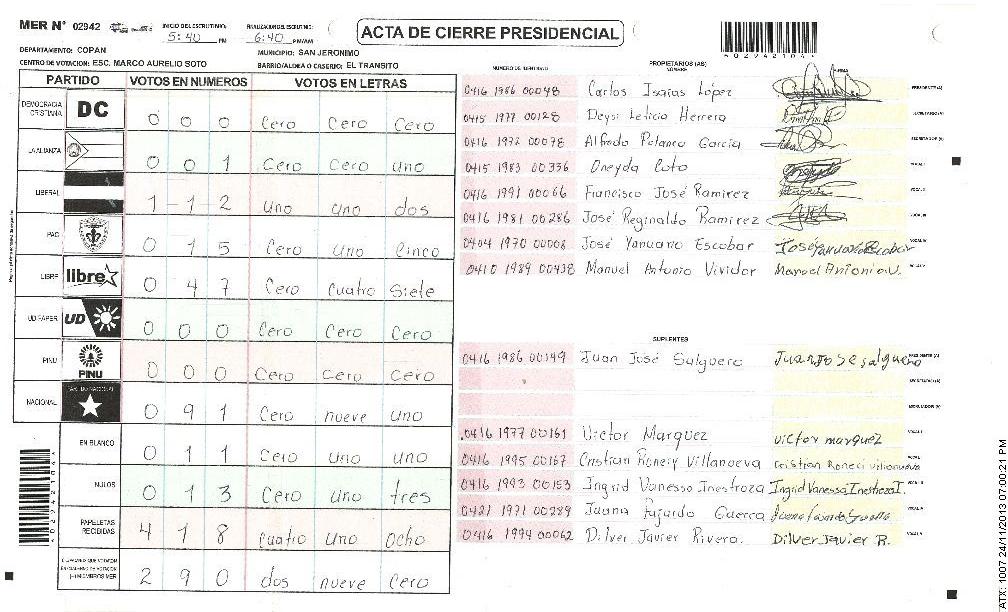 MER N° 02942
INICIO DEL ESCRUTINIO: 5:40 PM
FINALIZACION DEL ESCRUTINIO: 6:40 PM/AM
ACTA DE CIERRE PRESIDENCIAL
DEPARTAMENTO: COPAN
MUNICIPIO: SAN JERONIMO
CENTRO DE VOTACION: ESC. MARCO AURELIO SOTO
BARRIO/ALDEA O CASERIO: EL TRANSITO
PARTIDO VOTOS EN NUMEROS VOTOS EN LETRAS
DEMOCRACIA CRISTIANA DC 0 0 0 Cero Cero Cero
LA ALIANZA 0 0 1 Cero Cero uno
LIBERAL 1 - 1 - 2 uno uno dos
PAC 0 1 5 Cero uno Cinco
LIBRE libre 0 4 7 Cero cuatro Siete
UD FAPER UD 0 0 0 Cero Cero Cero
PINU PINU 0 0 0 Cero cero cero
NACIONAL 0 9 1 Cero nueve uno
EN BLANCO 0 1 1 Cero uno uno
NULOS 0 1 3 Cero uno tres
PAPELETAS RECIBIDAS 4 1 8 cuatro uno Ocho
2 9 0 dos nueve Cero
NUMERO DE IDENTIDAD PROPIETARIOS (AS) NOMBRE FIRMA
0416 1986 00048 Carlos Isaias López PRESIDENTE (A)
0415 1977 00128 Deysi Leticia Herrera SECRETARIO (A)
0416 1972 00078 Alfredo Polanco Garcia ESCRUTADOR (A)
0415 1983 00336 Oneyda Coto VOCAL I
0416 1991 00066 Francisco José Ramirez VOCAL II
0416 1981 00286 José Reginaldo Ramirez VOCAL III
0404 1970 00008 José Yanuario Escobar VOCAL IV
0410 1989 00438 Manuel Antonio Vividor Manuel Antonio V. VOCAL V
SUPLENTES
0416 1986 00149 Juan José Salguero Juan Jose salguero PRESIDENTE (A)
SECRETARIO (A)
ESCRUTADOR (A)
0416 1977 00161 Victor Marquez victor marquez VOCAL I
0416 1995 00167 Cristian Roneiy Villanoeva VOCAL II
0416 1993 00153 Ingrid Vanessa Inestroza Ingrid Vanessa Inestroza I. VOCAL III
0421 1971 00289 Juana Fajardo Guerra VOCAL IV
0416 1994 00062 Dilver Javier Rivera. Dilver Javier R. VOCAL V
ATX: 1007 24/11/2013 07:00:21 PM